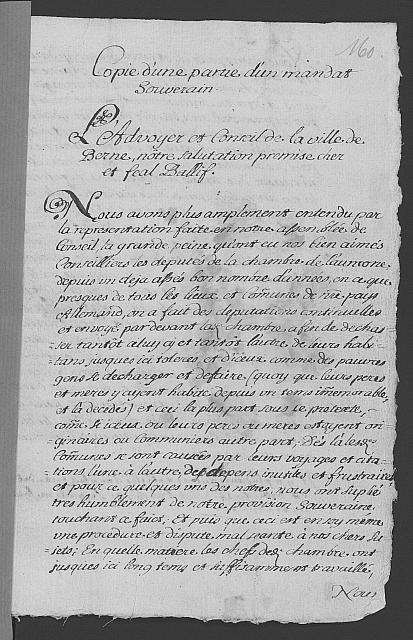 160
Copie d'une partie d'un mandat
Souverain.
L'Advoyer et Conseil de la ville de
Berne, notre salutation premise cher
et feal Ballif.
Nous avons plus amplement entendu par
la representation faite en notre assemblée de
Conseil, la grande peine qu'ont eu nos bien aimés
Conseilliers les deputés de la chambre de l'aumone,
depuis un deja assés bon nombre d'années, en ce que
presques de tous les lieux et Comunes de nre pays
Allemand, on a fait des deputations continuelles
et envoyé par devant lad. chambre, afin de dechas-
ser tantôt celuy cy et tantôt l'autre de leurs habi-
tans jusques ici toleres et d'iceux comme des pauvres
gens se decharger et defaire (quoy que leurs peres
et meres y ayent habité depuis un tems immemorable,
et la decédés) et ceci la plus part sous le pretexte,
come si iceux ou leurs peres ou meres estoyent ori-
ginaires ou Communiers autre part, Dès la lesd.
Comunes se sont causées par leurs voyages et cita-
tions l'une à l'autre, des depens inutils et frustraires
et pour ce quelques uns des notres, nous ont suplié
tres humblement de notre provision Souveraine
touchant ce faict, Et puis que ceci est en soy même
une procedure et dispute mal seante à nos chers Su-
jets; En quelle matiere les chefs de lad. chambre ont
jusques ici long tems et suffisamment travaillé,
Nous